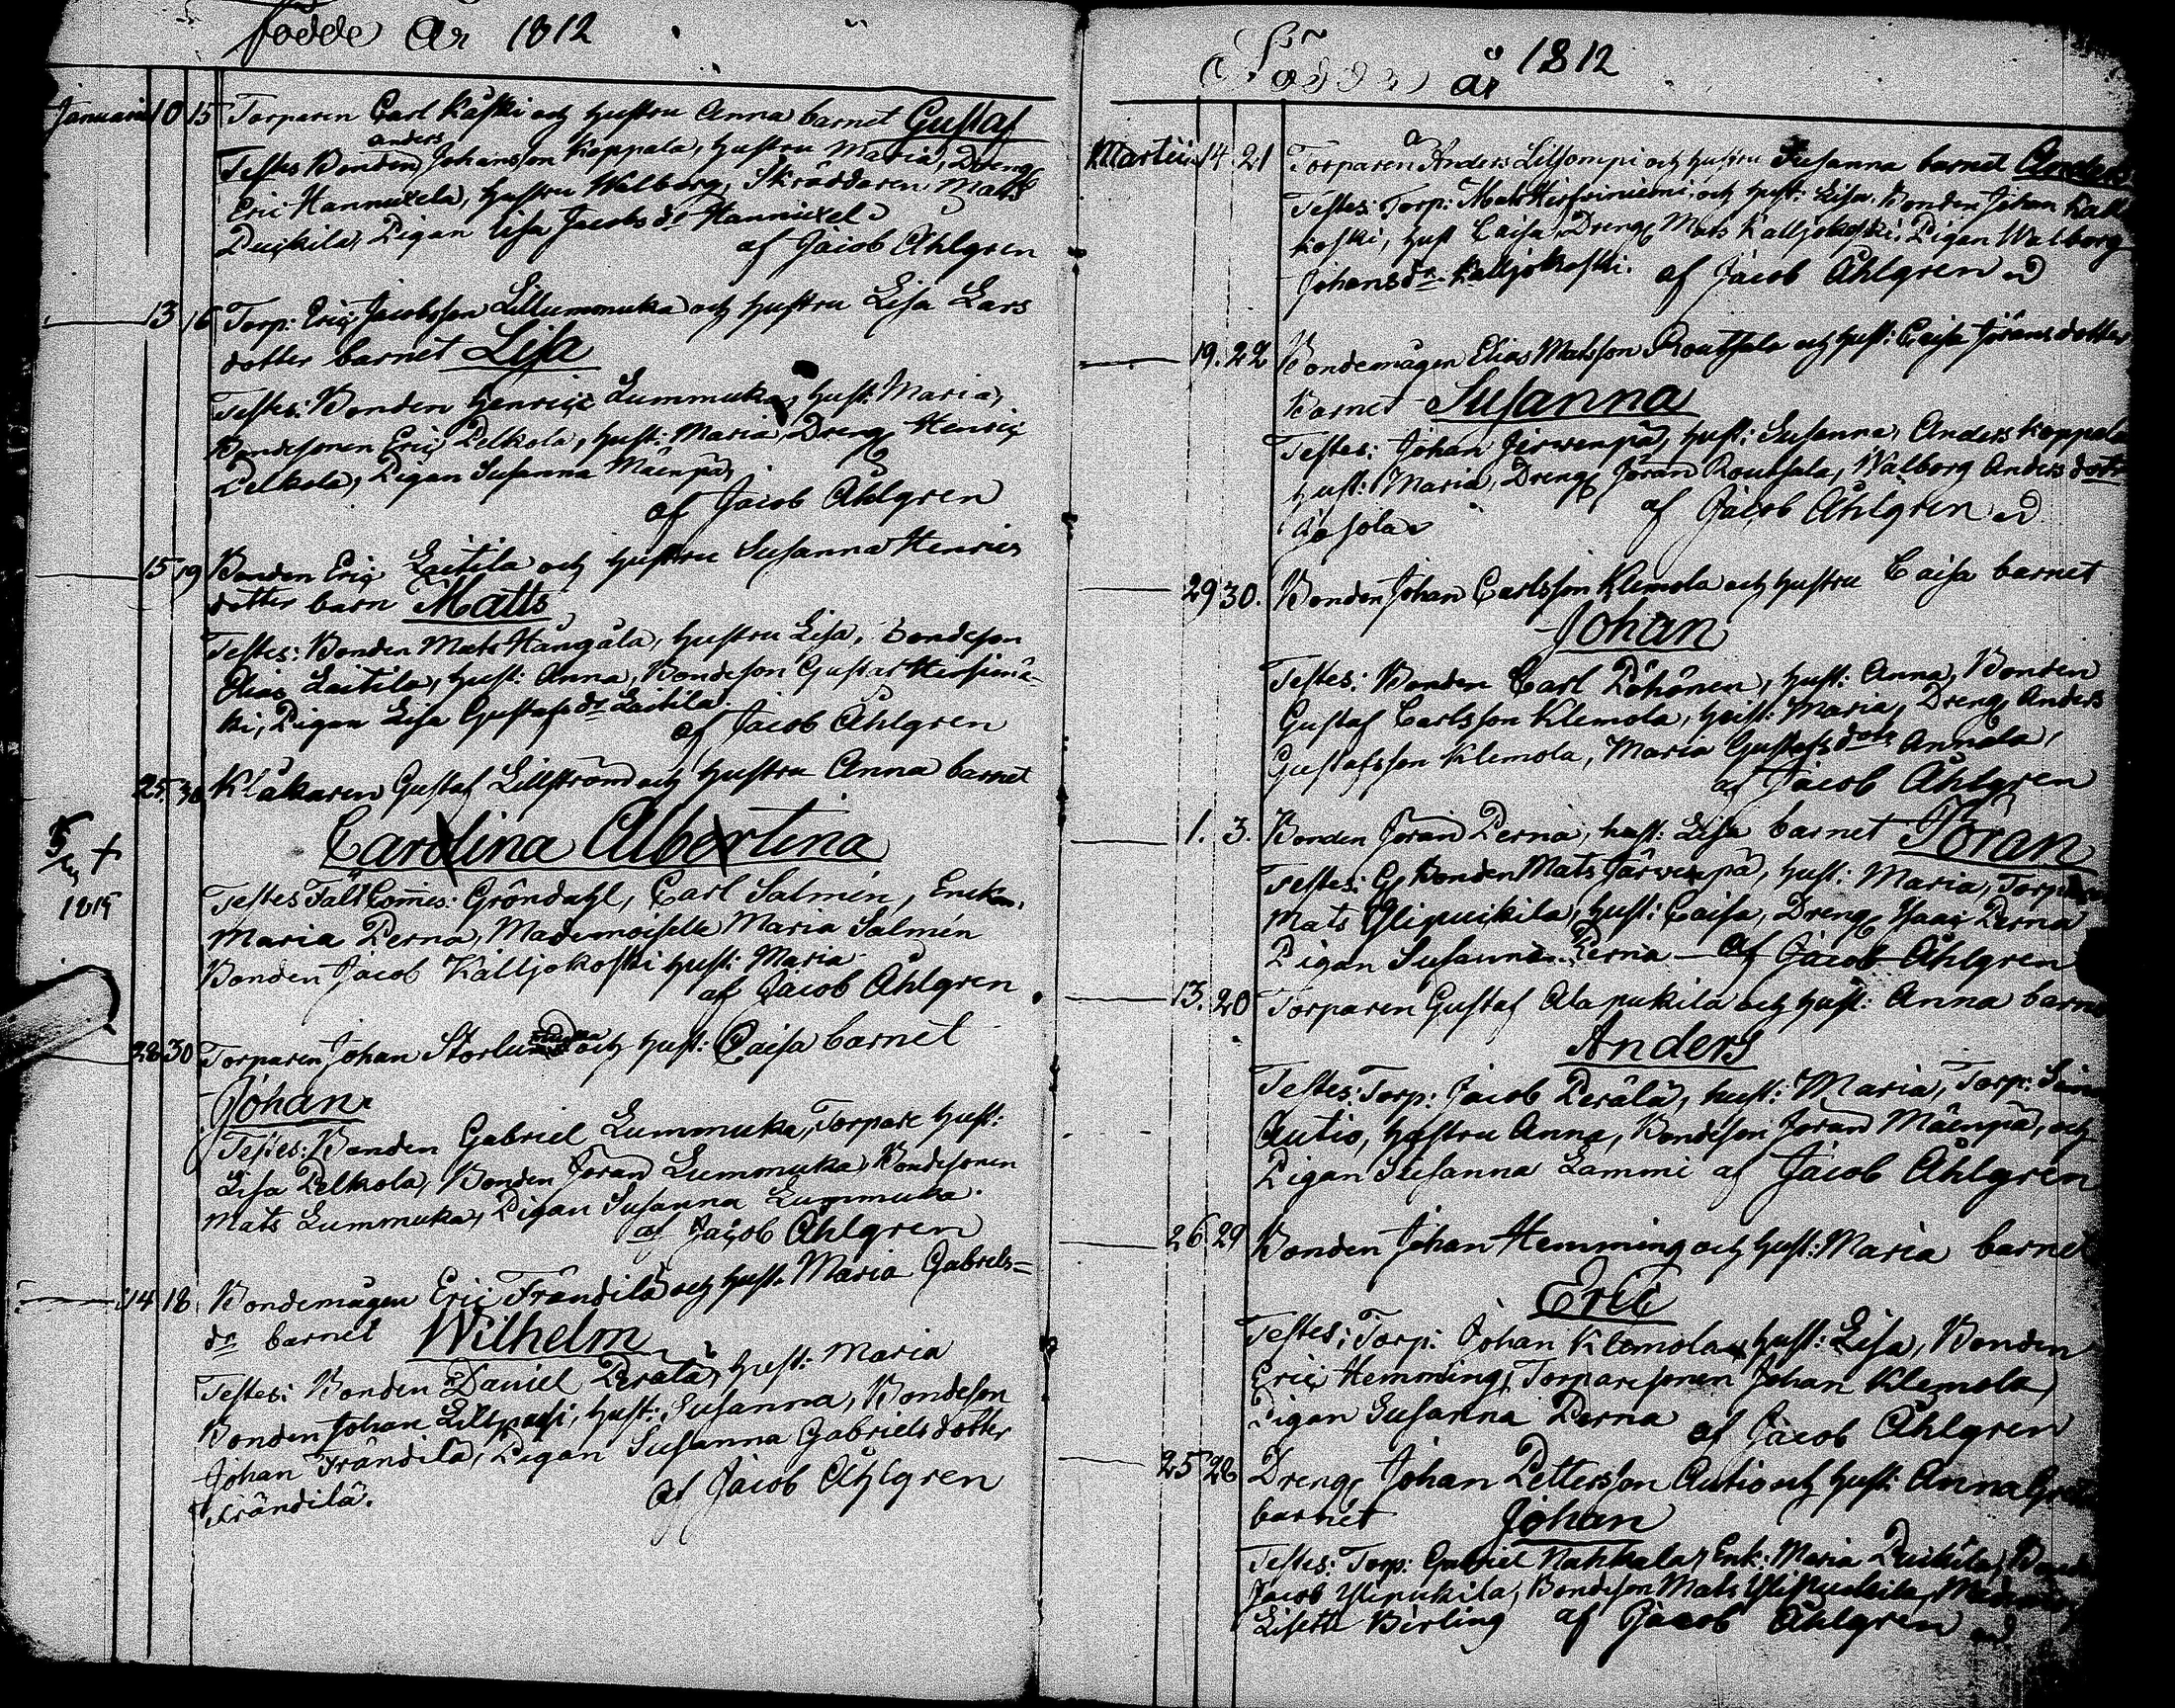 födde År 1812
Januarii 10 15 Torparen Carl Kåski och hustru Anna barnet Gustaf
anders
Testes Bonden Johansson Koppala, hustru Maria, Dreng
Eric Hannuxela, hustru Walborg, Skräddaren Mats
Puikila, Pigan Lisa Jacobs dr Hannuxela
af Jacob Åhlgren
13 16 Torp: Eric Jacobsson Lillummuka och hustru Lisa Lars
dotter barnet Lisa
Testes: Bonden Henric Lummuka, hust: Maria,
Bondesonen Eric Pelkola, hust: Maria, Dreng Henric
Pelkola, Pigan Susanna Mäenpä
af Jacob Åhlgren
15 19 Bonden Eric Laitila och hustru Susanna Henrics
dotter barn Matts
Testes: Bonden Mats Hangåla, hustru Lisa, Bondeson
Elias Laitila, hust: Anna, Bondeson Gustaf
ki, Pigan Lisa Gustafs dr Laitila
af Jacob Åhlgren
25. 30 Klåkaren Gustaf Lillström och hustru Anna barnet
Carolina Albertina
5 +
1819
Testes Fält Comis: Gröndahl, Carl Salmén, Enckan
Maria Perna, Mademoiselle Maria Salmén
Bonden Jacob Kalljokoski hust: Maria
af Jacob Åhlgren
28 30 Torparen Johan och hust: Caisa barnet
Johan
Testes: Bonden Gabriel Lummuka, Torpare hust:
Lisa Pelkola, Bonden Jöran Lummuka, Bondesonen
Mats Lummuka, Pigan Susanna Lummuka
af Jacob Åhlgren
14 18 Bondemågen Eric Frändilä och hust. Maria Gabriels=
dr barnet Wilhelm
Testes: Bonden Daniel Perala, hust: Maria
Bonden Johan hust: Susanna, Bondeson
Johan Frändilä, Pigan Susanna Gabriels dotter
Frändilä.
af Jacob Åhlgren
Födde år 1812
Martii 14 21 Torparen Anders Lillsompi och hustru Susanna barnet Anders
Testes: Torp: Mats och hust: Lisa. Bonden Johan Kall
koski, hust Caisa, Dreng Mats Kalljokoski, Pigan Walborg
Johans dr Kalljokoski. af Jacob Åhlgren
19. 22 Bondemågen Elias Matsson Routsala och hust: Caisa Jörans dotter
Barnet Susanna
Testes: Johan Jerwenpä, hust: Susanna, Anders Koppala
hust: Maria, Dreng Jöran Routsala, Walborg Anders dotr
af Jacob Åhlgren
29 30. Bonden Johan Carlsson Klemola och hustru Caisa barnet
Johan
Testes: Bonden Carl Pöhönen, hust: Anna, Bonden
Gustaf Carlsson Klemola, hust: Maria, Dreng Anders
Gustafsson Klemola, Maria Gustafs dotr Annala,
af Jacob Åhlgren
1. 3. Bonden Jöran Perna, hust: Lisa barnet Jöran
Testes: Bonden Mats Järwenpä, hust: Maria, Torparen
Mats Ylipuikila, hust: Caisa, Dreng Isaac Perna
Pigan Susanna Perna — af Jacob Åhlgren
13. 20 Torparen Gustaf Alapukila och hust: Anna barnet
Anders
Testes: Torp: Jacob Perälä, hust: Maria, Torp:
Autio, hustru Anna, Bondeson Jöran Mäenpä, och
Pigan Susanna Lammi af Jacob Åhlgren
26 29 Bonden Johan Hemming och hust: Maria barnet
Eric
Testes: Torp: Johan Klemola, hust: Lisa, Bonden
Eric Hemming, Torparesonen Johan Klemola,
Pigan Susanna Perna af Jacob Åhlgren
25 28 Dreng Johan Pettersson Autio och hust: Anna
barnet Johan
Testes: Torp: Gabriel Nahkala, Enk: Maria Puikila,
Jacob Ylipukila, Bondeson Mats Ylipuikila,
Lisette Birling af Jacob Åhlgren